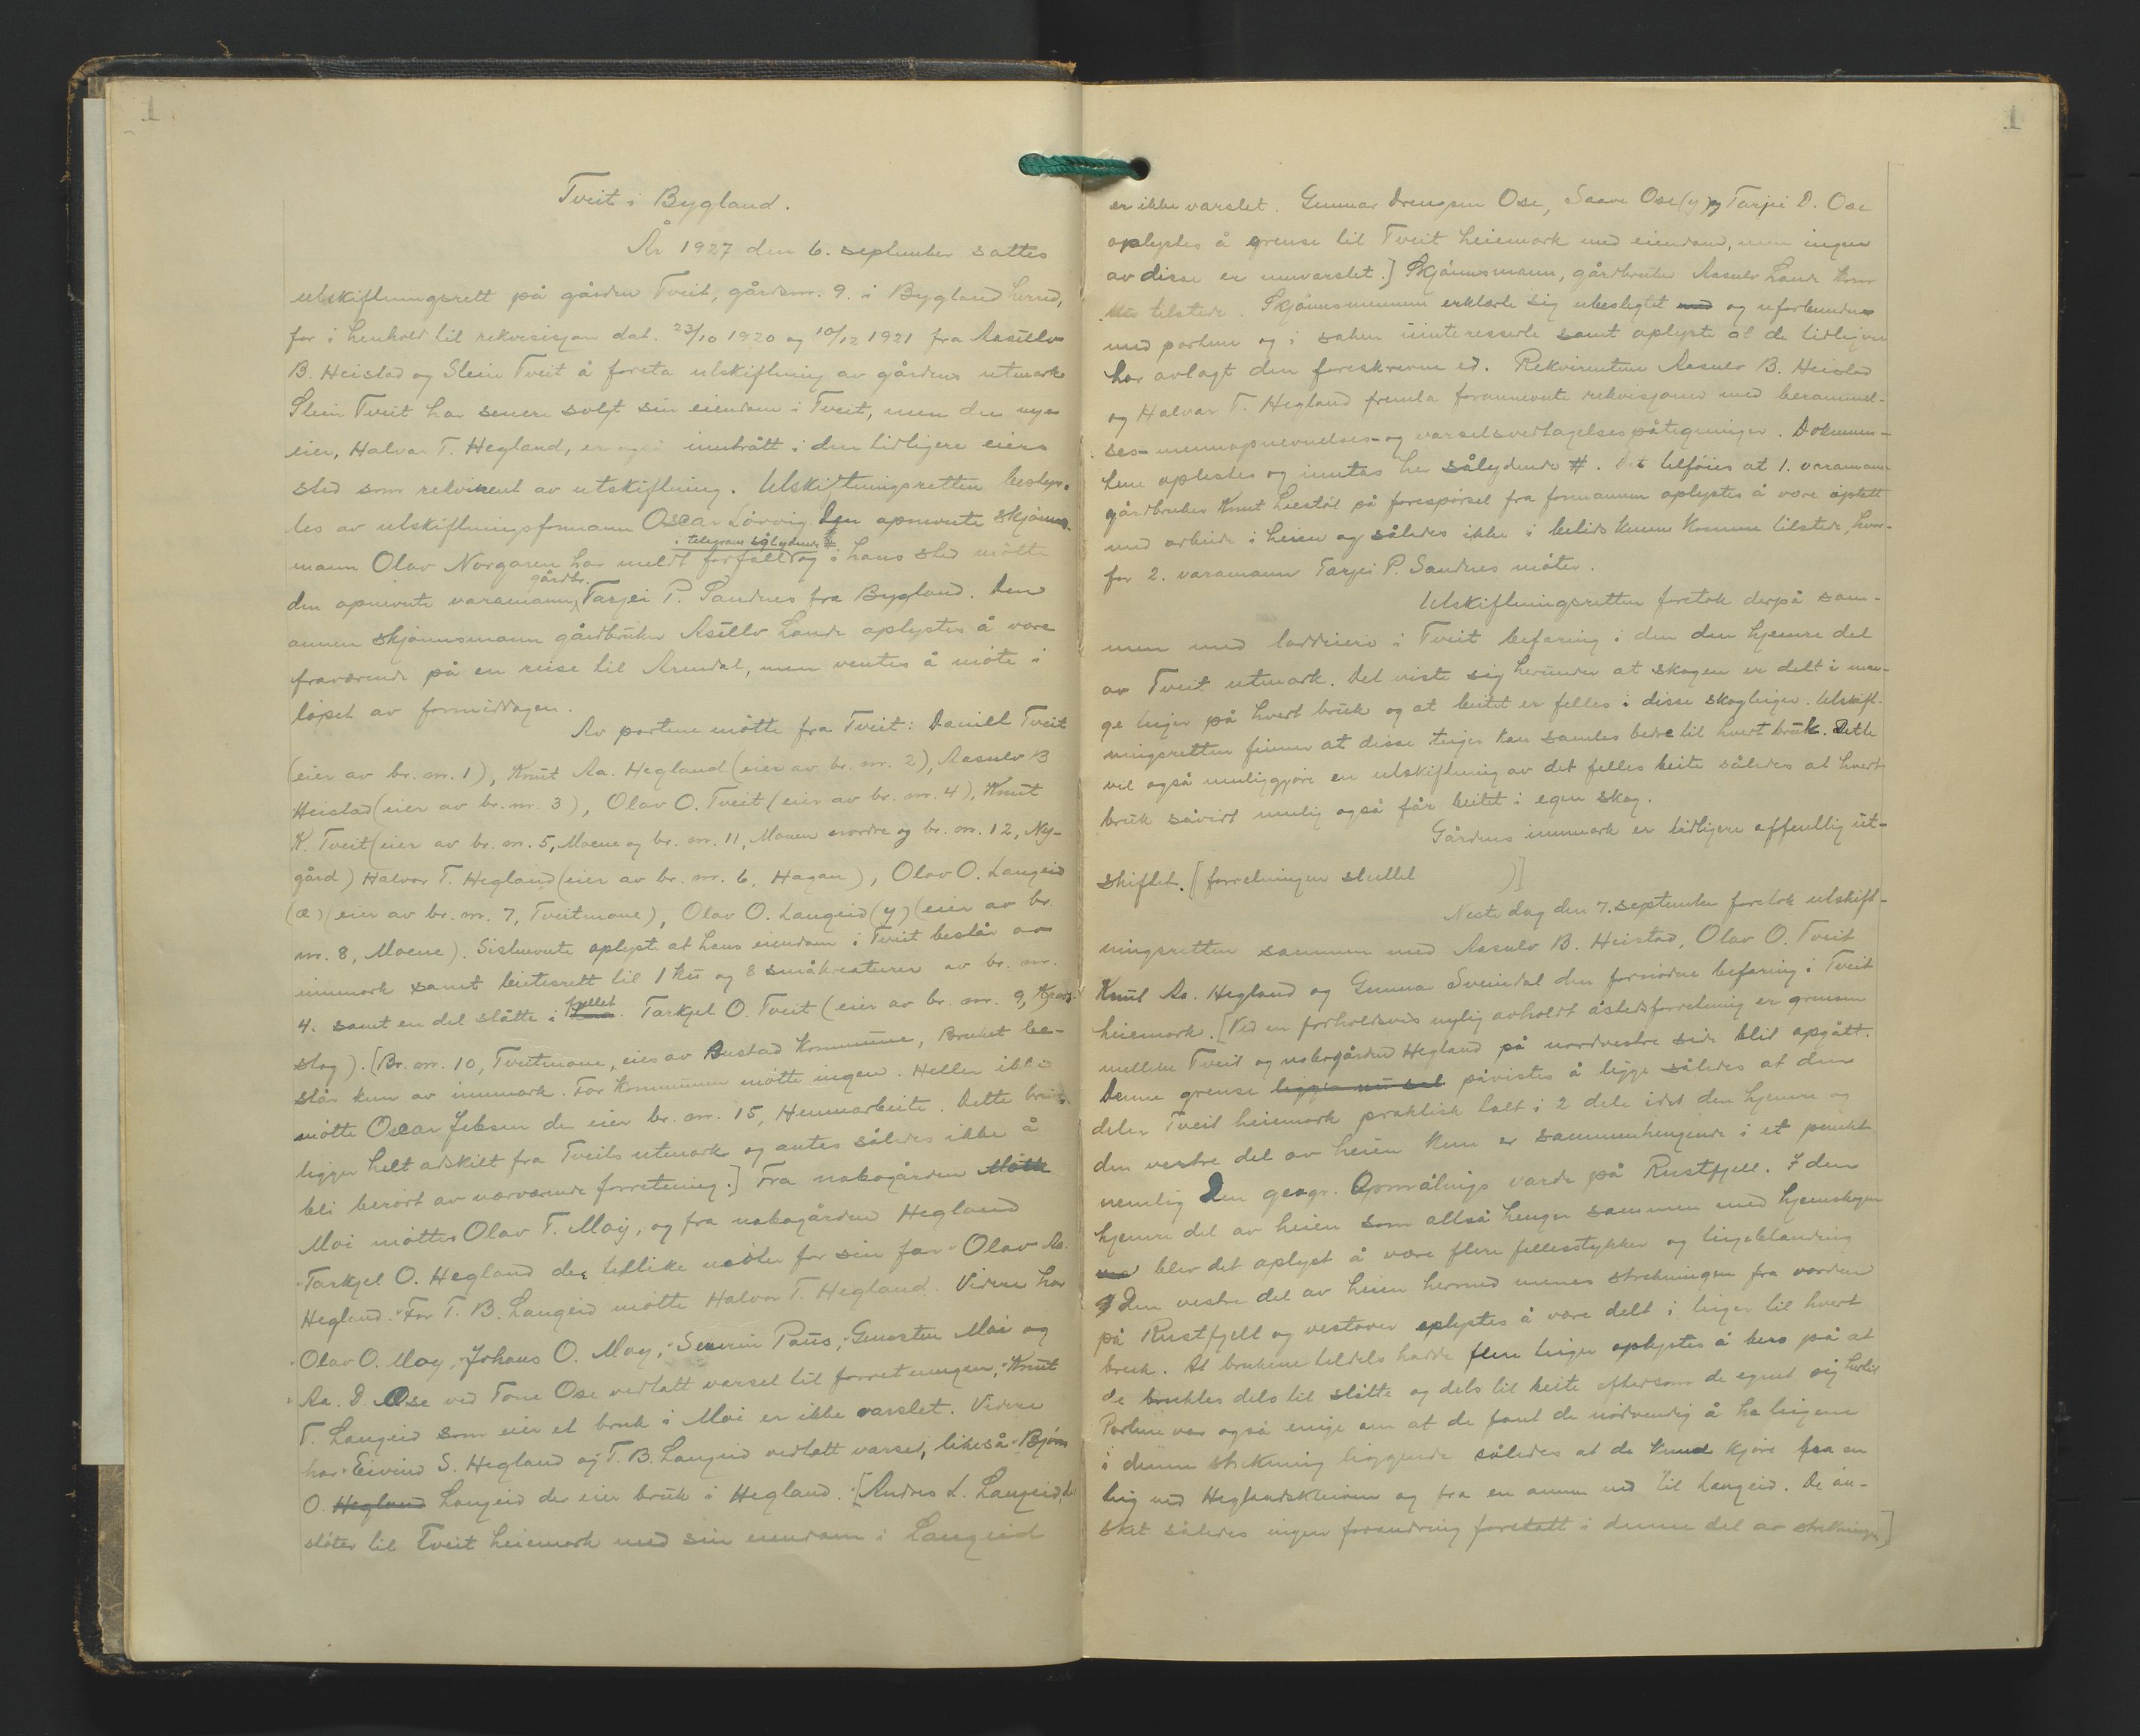 1
Tveit i Bygland.
År 1927 den 6. september sattes
utskiftningsrett på gården Tveit, gårdsnr. 9. i Bygland herred,
for i henhold til rekvisisjon dat. 23/10 1920 og 10/12 1921 fra Aasulv
B. Heistad og Stein Tveit å foreta utskiftning av gårdens utmark
Stein Tveit har senere solgt sin eiendom i Tveit, men den nye
eier, Halvar T. Hegland, er også inntrått i den tidligere eiers
sted som rekvirent av utskiftning. Utskiftningsretten bestyr-
tes av utskiftningsformann Oscar Lövvig. Den opnevnte skjønns-
i telegram sålydende #
mann Olav Norgaren har meldt forfall og i hans sted møtte
gårdbr.
den opnevnte varamann, Tarjei P. Sandnes fra Bygland. Den
annen skjønnsmann gårdbruker Asulv Lande oplystes å være
fraværende på en reise til Arendal, men ventes å møte i
løpet av formiddagen.
Av partene møtte fra Tveit: Daniel Tveit
(eier av br. nr. 1), Knut Aa. Hegland (eier av br. nr. 2), Aasulv B
Heistad (eier av br. nr. 3), Olav O. Tveit (eier av br. nr. 4), Knut
K. Tveit (eier av br. nr. 5, Moene og br. nr. 11, Monen nordre og br. nr. 12, Ny-
gård) Halvor T. Hegland (eier av br. nr. 6, Hagan), Olav O. Langeid
(æ) (eier av br. nr. 7, Tveitmone), Olav O. Langeid (y) (eier av br.
nr. 8, Moene). Sistnevnte oplyste at hans eiendom i Tveit består av
innmark samt beitesrett til 1 ku og 8 småkreaturer av br. nr.
fjellet
4. samt en del slåtte i. Tarkjel O. Tveit (eier av br. nr. 9,
slog). [Br. nr. 10, Tveitmone, eies av Austad kommune, Bruket be-
står kun av innmark. For kommunen møtte ingen. Heller ikke
møtte Oscar Jebsen der eier br. nr. 15, Hennarbeite. Dette bruk
ligger helt adskilt fra Tveits utmark og antas således ikke å
bli berørt av nærværende forretning.] Fra nabogården Møtte
Moi møtte Olav T. Moij, og fra nabogården Hegland
Tarkjel O. Hegland der tillike møter for sin far Olav Aa.
Hegland. For T. B. Langeid møtte Halvor T. Hegland. Videre har
Olav O. Moy, Johans O. Moy, Severin Paus, Moi og
Aa. D. Ose ved Tone Ose vedtatt varsel til forretningen, Knut
T. Langeid som eier et bruk i Moi er ikke varslet. Videre
har Eivind S. Hegland og T. B. Langeid vedtatt varsel, likeså Bjørn
O. Hegland Langeid der eier bruk i Hegland. [Andres L. Langeid, der
støter til Tveit heiemark med sin eiendom i Langeid
1
er ikke varslet. Gunnar Drengsen Ose, Saave Ose (y) og Tarjei D. Ose
oplystes å grense til Tveit heiemark med eiendom, men ingen
av disse er varslet.] Skjønnsmann, gårdbruker Aasulv Lande kom
nu tilstede. Skjønnsmennene erklærte sig ubeslegtet med og uforbundne
med partene og i saken uinteresserte samt oplyste at de tidligere
har avlagt den foreskrevne ed. Rekvirentene Aasulv B. Heistad
og Halvar T. Hegland fremla forannevnte rekvisisjoner med berammel-
ses- mennopnevnelses- og varselsvedtagelsespåtegninger. Dokumen-
tene oplestes og inntas her sålydende #. Det tilføies at 1. varamann
gårdbruker Knut Liestøl på forespørsel fra formannen oplystes å være optatt
med arbeide i heien og således ikke i betids kunne komme tilstede, hvor-
for 2. varamann Tarjei P. Sandnes møter.
Utskiftningsretten foretok derpå sam-
men med loddeiere i Tveit befaring i den den hjemre del
av Tveit utmark. Det viste sig herunder at skogen er delt i man-
ge teiger på hvert bruk og at beitet er felles i disse skogteiger. Utskift-
ningsretten finner at disse teiger kan samles bedre til hvert bruk. Dette
vil også muliggjøre en utskiftning av det felles beite således at hvert
bruk såvidt mulig også får beitet i egen skog.
Gårdens innmark er tidligere offentlig ut-
skiftet. [forretningen sluttet )]
Neste dag den 7. september foretok utskift-
ningsretten sammen med Aasulv B. Heistad, Olav O. Tveit
Knut Aa. Hegland og Gunnar Sveindal den fornødne befaring i Tveit
heiemark. [Ved en forholdsvis nylig avholdt åstedsforretning er grensen
mellem Tveit og nabogården Hegland på nordvestre side blit opgått.
Denne grense ligger nu påvistes å ligge således at den
deler Tveit heiemark praktisk talt i 2 dele idet den hjemre og
den vestre del av heien kun er sammenhengende i et punkt
nemlig den geogr. Opmålings varde på Rustfjell. I den
hjemre del av heien som altså henger sammen med hjemskogen
blev det oplyst å være flere fellesstykker og teigeblanding
I den vestre del av heien hermed menes strekningen fra varden
på Rustfjell og vestover oplystes å være delt i teiger til hvert
bruk. At brukene tildels hadde flere teiger oplystes å bero på at
de bruktes dels til slåtte og dels til beite eftersom de egnet sig hertil
Partene var også enige om at de fant de nødvendig å ha teigene
i denne strekning liggende således at de kunde kjøre fra en
teig ned Heglandskleiven og fra en annen ned til Langeid. De øn-
sket således ingen forandring foretatt i denne del av strekningen]